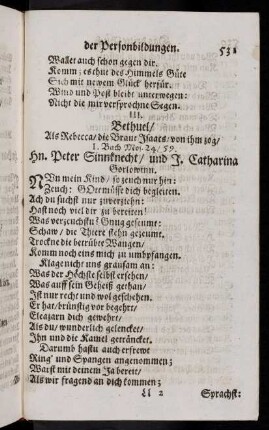 der Personbildungen. 531
Wallet auch schon gegen dir.
Komm; es thut des Himmels Güte
Sich mit newem Glück herfür.
Wind und Post bleibt unterwegen:
Nicht die mir versprochne Segen.
III.
Bethuel/
Als Rebecca/ die Braut Isaacs/ von ihm zog/
1. Buch Mos. 24/ 59.
Hn. Peter Sinnknecht/ und J. Catharina
Gorlowinn.
NUn mein Kind/ so zeuch nur hin:
Zeuch: GOtt müsse dich begleiten.
Ach du suchst nur zuverziehn:
Hast noch viel dir zu bereiten!
Was verzeuchstu? Gnug geseumt:
Schaw/ die Thiere stehn gezeumt.
Trockne die betrübte Wangen/
Komm noch eins mich zu umbpfangen.
Klage nicht uns grausam an:
Was der Höchste selbst ersehen/
Was auff sein Geheiß gethan/
Ist nur recht und wol geschehen.
Er hat/ brünstig vor begehrt/
Eleazarn dich gewehrt/
Als du/ wunderlich gelencket/
Ihn und die Kamel geträncket.
Darumb hastu auch erfrewt
Ring' und Spangen angenommen;
Warst mit deinem Ja bereit/
Als wir fragend an dich kommen;
Ll 2 Sprachst: